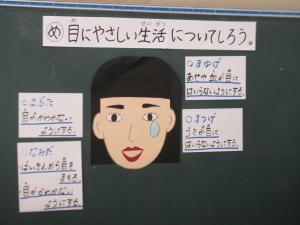 め 目にやさしい生活についてしろう。
め
せいかつ
○まぶた
目がかわかない
ようにする。
○なみだ
ばいきんから目を
まもる
目がかわかない
ようにする。
○まゆげ
あせや血が目に
はいらないようにする。
○まつげ
ゴミが目に
はいらないようにする。